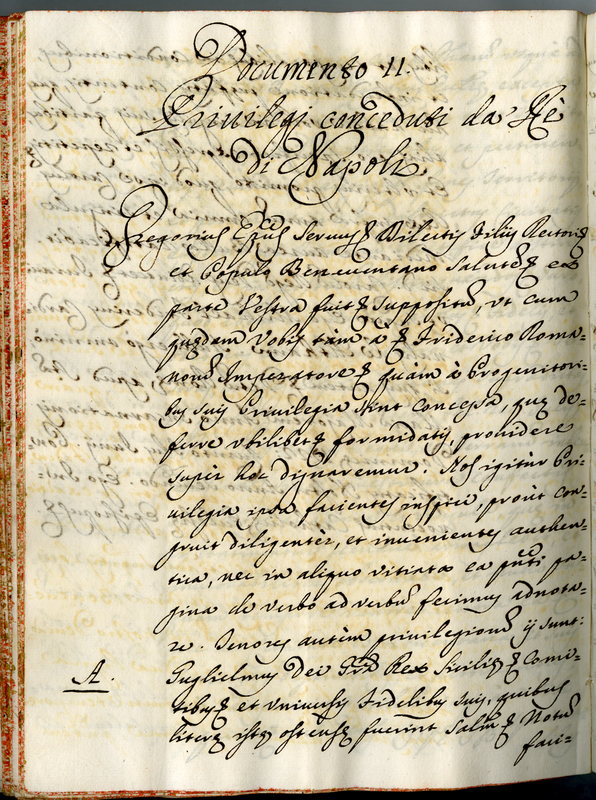 Documento II.
Privilegj conceduti da Rè
di Napoli
Gregorius Ep̃us Servus &c. Dilectis Filiis Rectori &c.
et Populo Beneventano Salutẽ &c. ex
parte Vestra fuit &c. suppositũ, ut cum
quædam Vobis tàm à &c. Friderico Roma-
norũ Imperatore &c. quàm à Progenitori-
bus suis Privilegia sint concessa, quæ de-
ferre ubilibet &c. formidatis, providere
supèr hoc dignaremur. Nos igitùr Pri-
vilegia ipsa facientes inspici, proùt con-
gruit diligentèr, et invenientes authen-
tica, nec in aliquo vitiata ea pñti pa-
gina de verbo ad verbũ fecimus adnota-
re. Tenores autèm privilegiorũ ij sunt:
A. Guglielmus Dei Grã Rex Siciliæ &c. Comi-
tibus &c. et Universis Fidelibus suis, quibus
literæ istæ ostensæ fuerint Salm̃ &c. Notũ
faci=